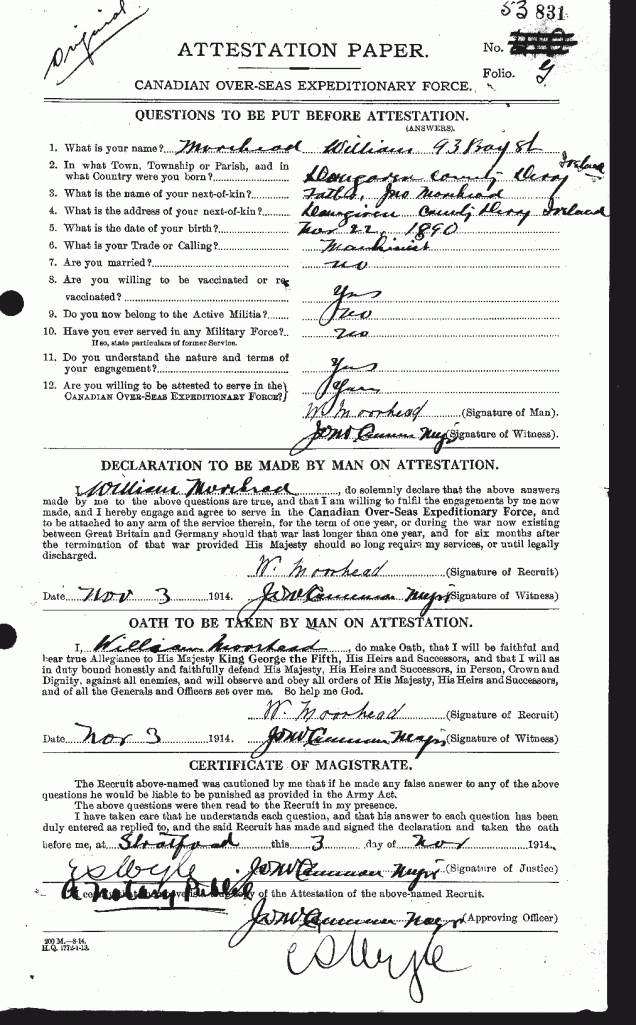 Original
53 831
ATTESTATION PAPER.
No.
Folio.
CANADIAN OVER-SEAS EXPEDITIONARY FORCE.
QUESTIONS TO BE PUT BEFORE ATTESTATION.
(ANSWERS).
1. What is your name? Moorhead William 93 Bay St
2. In what Town, Township or Parish, and in
what Country were you born? County Derry Ireland
3. What is the name of your next-of-kin? Father, Jno Moorhead
4. What is the address of your next-of-kin? County Derry Ireland
5. What is the date of your birth? Nov 22, 1890
6. What is your Trade or Calling? Machinist
7. Are you married? no
8. Are you willing to be vaccinated or re-
vaccinated? Yes
9. Do you now belong to the Active Militia? no
10. Have you ever served in any Military Force? no
If so, state particulars of former Service.
11. Do you understand the nature and terms of
your engagement? Yes
12. Are you willing to be attested to serve in the
CANADIAN OVER-SEAS EXPEDITIONARY FORCE? Yes
W. Moorhead (Signature of Man).
(Signature of Witness).
DECLARATION TO BE MADE BY MAN ON ATTESTATION.
I, William Moorhead, do solemnly declare that the above answers
made by me to the above questions are true, and that I am willing to fulfil the engagements by me now
made, and I hereby engage and agree to serve in the Canadian Over-Seas Expeditionary Force, and
to be attached to any arm of the service therein, for the term of one year, or during the war now existing
between Great Britain and Germany should that war last longer than one year, and for six months after
the termination of that war provided His Majesty should so long require my services, or until legally
discharged.
W. Moorhead (Signature of Recruit)
Date Nov 3 1914. (Signature of Witness)
OATH TO BE TAKEN BY MAN ON ATTESTATION.
I, William Moorhead, do make Oath, that I will be faithful and
bear true Allegiance to His Majesty King George the Fifth, His Heirs and Successors, and that I will as
in duty bound honestly and faithfully defend His Majesty, His Heirs and Successors, in Person, Crown and
Dignity, against all enemies, and will observe and obey all orders of His Majesty, His Heirs and Successors,
and of all the Generals and Officers set over me. So help me God.
W. Moorhead (Signature of Recruit)
Date Nov 3 1914. (Signature of Witness)
CERTIFICATE OF MAGISTRATE.
The Recruit above-named was cautioned by me that if he made any false answer to any of the above
questions he would be liable to be punished as provided in the Army Act.
The above questions were then read to the Recruit in my presence.
I have taken care that he understands each question, and that his answer to each question has been
duly entered as replied to, and the said Recruit has made and signed the declaration and taken the oath
before me, at Stratford this 3 day of Nov 1914.
(Signature of Justice)
A Notary Public
of the Attestation of the above-named Recruit.
(Approving Officer)
200 M.—8-14.
H.Q. 1772-1-13.